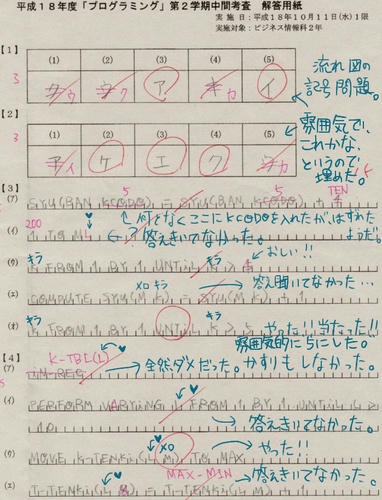 平成18年度「プログラミング」第2学期中間考査 解答用紙
実施日:平成18年10月11日(水)1限
実施対象:ビジネス情報科2年
【1】
(1) (2) (3) (4) (5)
3 ウ ク ア キ カ イ
流れ図の
記号問題。
【2】
(1) (2) (3) (4) (5)
3 イ ケ エ ク カ
雰囲気で、
これかな、
というので
埋めた。
【3】
(ア)
5 5 TEN
↑何となくここにKCODOを入れたが、はずれた
ようだ。
(イ)
200
答えきいてなかった。
(ウ)
キラ FROM 1 BY 1 UNTIL K > 4
おしい!!
(エ)
XO キラ
COMPUTE SYU(M K) = SYU(M K) + 1
答え聞いてなかった…
(オ)
キラ FROM 1 BY 1 UNTIL K > 5
キラ
やった!!当たった!!
雰囲気的に5にした。
【4】
(ア)
K-TBL(L)
IN-REC
全然ダメだった。かすりもしなかった。
(イ)
PERFORM VARYING L FROM 1 BY 1 UNTIL L >
10
答えきいてなかった。
(ウ)
XO
MOVE K-TENKI(L M) TO MAX
やった!!
(エ)
MAX-MIN
答えきいてなかった。